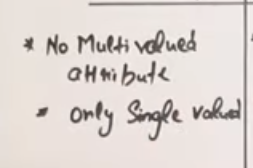 * No Multivalued
attribute
* only Single valued